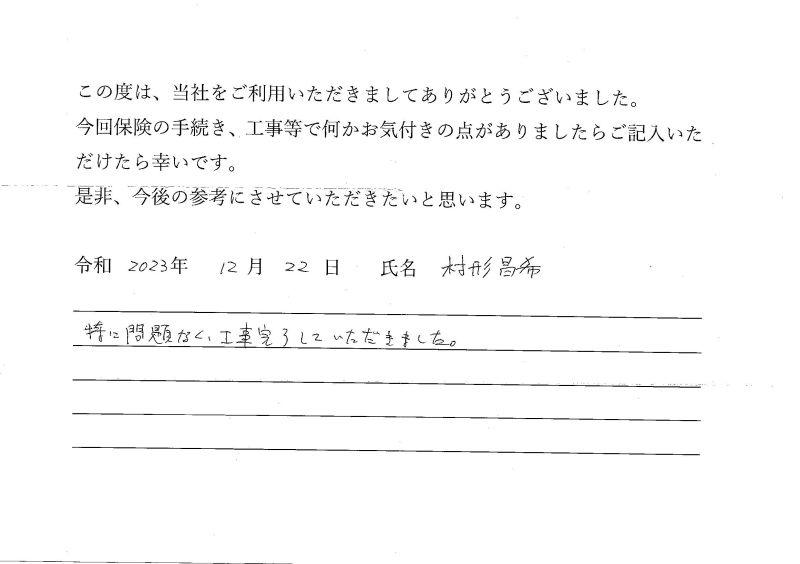 この度は、当社をご利用いただきましてありがとうございました。
今回保険の手続き、工事等で何かお気付きの点がありましたらご記入いた
だけたら幸いです。
是非、今後の参考にさせていただきたいと思います。
令和 2023年 12月 22日 氏名 村形昌希
特に問題なく、工事完了していただきました。